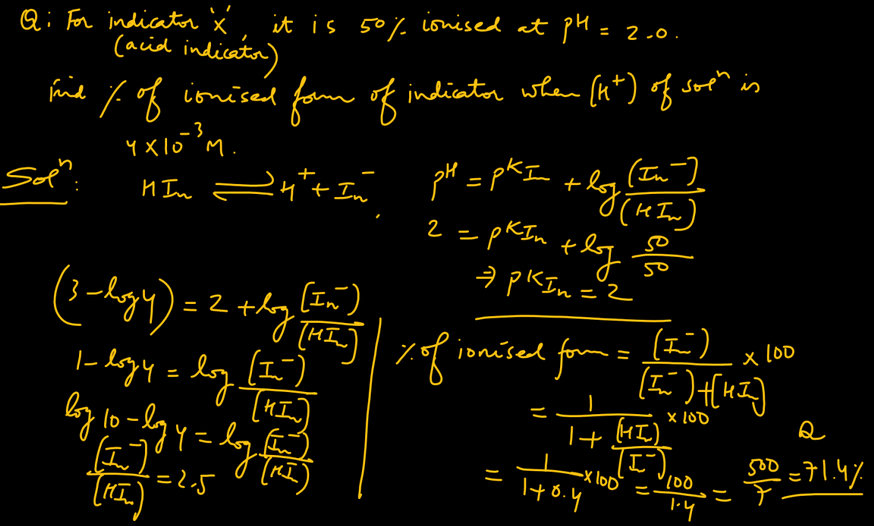 Q: For indicator 'X', it is 50% ionised at pH = 2.0.
(acid indicator)
Find % of ionised form of indicator when (H+) of solⁿ is
4×10⁻³ M.
Solⁿ: HIn ⇌ H⁺ + In⁻,
pH = pKIn + log (In⁻)/(HIn)
2 = pKIn + log 50/50
⇒ pKIn = 2
(3 - log 4) = 2 + log (In⁻)/(HIn)
1 - log 4 = log (In⁻)/(HIn)
log 10 - log 4 = log (In⁻)/(HIn)
(In⁻)/(HIn) = 2.5
% of ionised form = (In⁻)/((In⁻)+(HIn)) × 100
= 1/(1 + (HIn)/(In⁻)) × 100
= 1/(1+0.4) × 100 = 100/1.4 = 500/7 = 71.4%